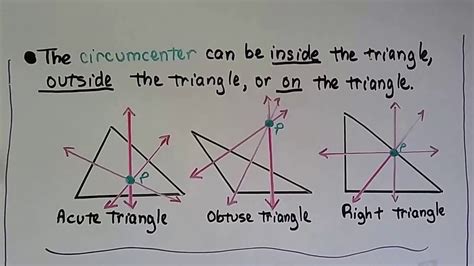 • The circumcenter can be inside the triangle,
outside the triangle, or on the triangle.
P P P
Acute Triangle Obtuse Triangle Right triangle